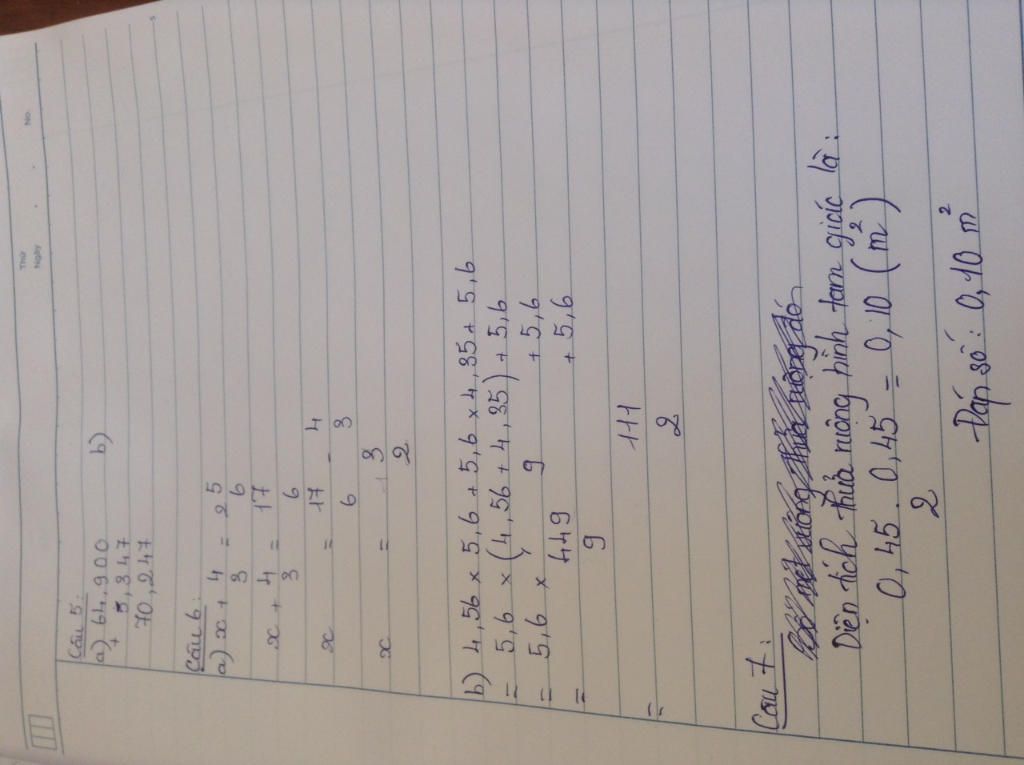 Thứ
Ngày
No.
Câu 5:
a) 64,900 b)
+ 5,347
70,247
Câu 6:
a) x + 4 = 2 5
3 6
x + 4 = 17
3 6
x = 17 - 4
6 3
x = 3
2
b) 4,56 x 5,6 + 5,6 x 4,35 + 5,6
= 5,6 x (4,56 + 4,35) + 5,6
= 5,6 x 9 + 5,6
= 449 + 5,6
9
111
= 2
Câu 7:
Diện tích thửa ruộng hình tam giác là:
0,45 . 0,45 = 0,10 (m²)
2
Đáp số: 0,10 m²